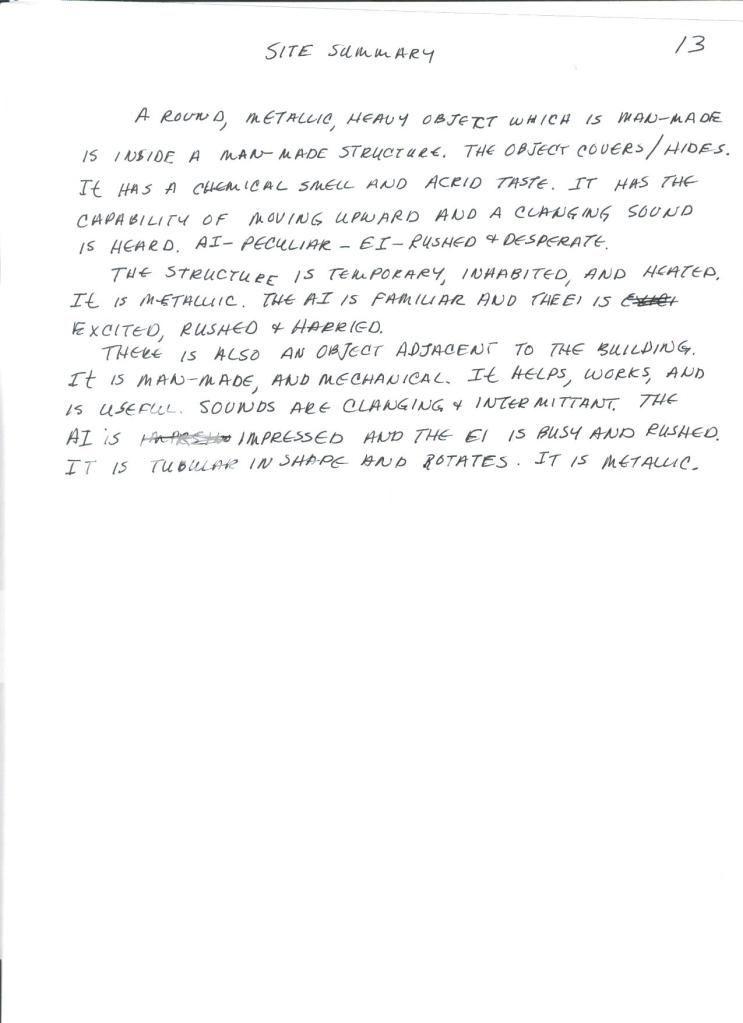 SITE SUMMARY
13
A ROUND, METALLIC, HEAVY OBJECT WHICH IS MAN-MADE
IS INSIDE A MAN-MADE STRUCTURE. THE OBJECT COVERS/HIDES.
IT HAS A CHEMICAL SMELL AND ACRID TASTE. IT HAS THE
CAPABILITY OF MOVING UPWARD AND A CLANGING SOUND
IS HEARD. AI-PECULIAR-EI-RUSHED & DESPERATE.
THE STRUCTURE IS TEMPORARY, INHABITED, AND HEATED.
IT IS METALLIC. THE AI IS FAMILIAR AND THE EI IS
EXCITED, RUSHED & HARRIED.
THERE IS ALSO AN OBJECT ADJACENT TO THE BUILDING.
IT IS MAN-MADE, AND MECHANICAL. IT HELPS, WORKS, AND
IS USEFUL. SOUNDS ARE CLANGING & INTERMITTANT. THE
AI IS IMPRESSED AND THE EI IS BUSY AND RUSHED.
IT IS TUBULAR IN SHAPE AND ROTATES. IT IS METALLIC.